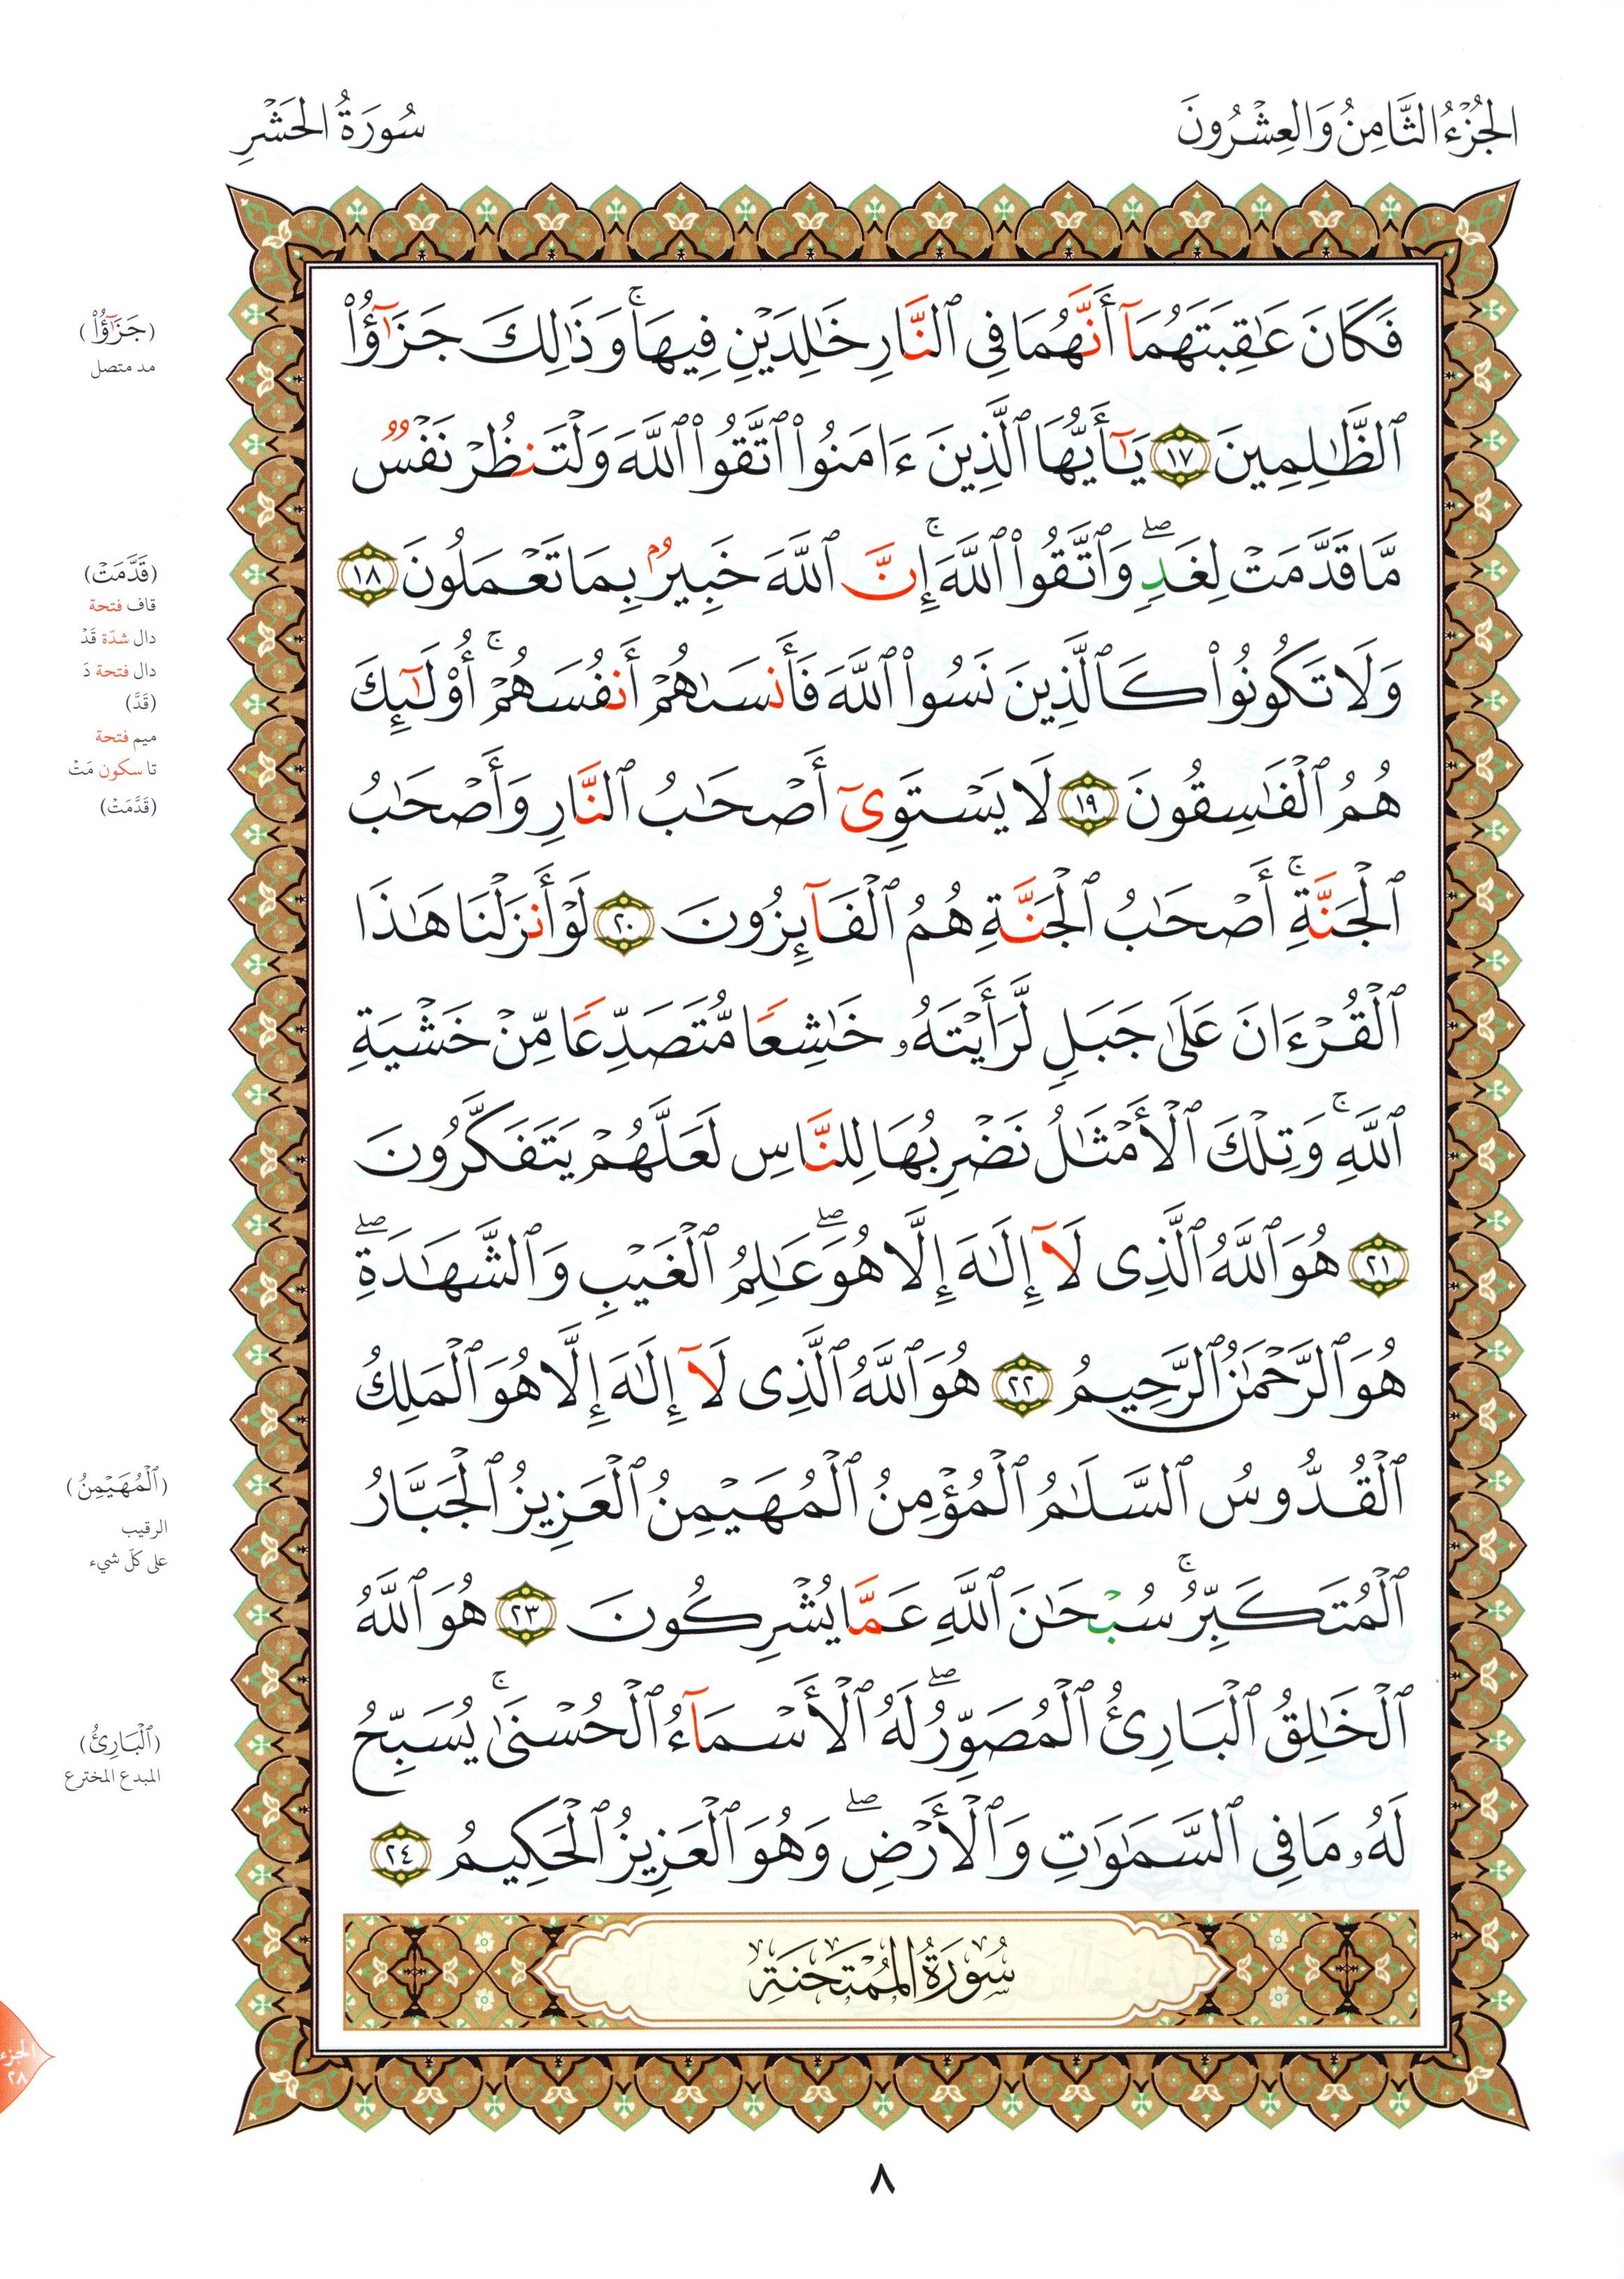 الجُزْءُ الثَّامِنُ وَالعِشْرُونَ
سُورَةُ الحَشْرِ
فَكَانَ عَٰقِبَتَهُمَآ أَنَّهُمَا فِى ٱلنَّارِ خَٰلِدَيْنِ فِيهَاۚ وَذَٰلِكَ جَزَٰٓؤُا۟
ٱلظَّٰلِمِينَ ١٧ يَٰٓأَيُّهَا ٱلَّذِينَ ءَامَنُوا۟ ٱتَّقُوا۟ ٱللَّهَ وَلْتَنظُرْ نَفْسٌ
مَّا قَدَّمَتْ لِغَدٍۖ وَٱتَّقُوا۟ ٱللَّهَۚ إِنَّ ٱللَّهَ خَبِيرٌۢ بِمَا تَعْمَلُونَ ١٨
وَلَا تَكُونُوا۟ كَٱلَّذِينَ نَسُوا۟ ٱللَّهَ فَأَنسَىٰهُمْ أَنفُسَهُمْۚ أُو۟لَٰٓئِكَ
هُمُ ٱلْفَٰسِقُونَ ١٩ لَا يَسْتَوِىٓ أَصْحَٰبُ ٱلنَّارِ وَأَصْحَٰبُ
ٱلْجَنَّةِۚ أَصْحَٰبُ ٱلْجَنَّةِ هُمُ ٱلْفَآئِزُونَ ٢٠ لَوْ أَنزَلْنَا هَٰذَا
ٱلْقُرْءَانَ عَلَىٰ جَبَلٍ لَّرَأَيْتَهُۥ خَٰشِعًا مُّتَصَدِّعًا مِّنْ خَشْيَةِ
ٱللَّهِۚ وَتِلْكَ ٱلْأَمْثَٰلُ نَضْرِبُهَا لِلنَّاسِ لَعَلَّهُمْ يَتَفَكَّرُونَ
٢١ هُوَ ٱللَّهُ ٱلَّذِى لَآ إِلَٰهَ إِلَّا هُوَۖ عَٰلِمُ ٱلْغَيْبِ وَٱلشَّهَٰدَةِۖ
هُوَ ٱلرَّحْمَٰنُ ٱلرَّحِيمُ ٢٢ هُوَ ٱللَّهُ ٱلَّذِى لَآ إِلَٰهَ إِلَّا هُوَ ٱلْمَلِكُ
ٱلْقُدُّوسُ ٱلسَّلَٰمُ ٱلْمُؤْمِنُ ٱلْمُهَيْمِنُ ٱلْعَزِيزُ ٱلْجَبَّارُ
ٱلْمُتَكَبِّرُۚ سُبْحَٰنَ ٱللَّهِ عَمَّا يُشْرِكُونَ ٢٣ هُوَ ٱللَّهُ
ٱلْخَٰلِقُ ٱلْبَارِئُ ٱلْمُصَوِّرُۖ لَهُ ٱلْأَسْمَآءُ ٱلْحُسْنَىٰۚ يُسَبِّحُ
لَهُۥ مَا فِى ٱلسَّمَٰوَٰتِ وَٱلْأَرْضِۖ وَهُوَ ٱلْعَزِيزُ ٱلْحَكِيمُ ٢٤
سُورَةُ المُمْتَحَنَةِ
(جَزَٰٓؤُا۟)
مد متصل
(قَدَّمَتْ)
قاف فتحة
دال شدّة قَدْ
دال فتحة دَ
(قَدَّ)
ميم فتحة
تا سكون مَتْ
(قَدَّمَتْ)
(ٱلْمُهَيْمِنُ)
الرقيب
على كلّ شيء
(ٱلْبَارِئُ)
المبدع المخترع
الجزء
٢٨
٨